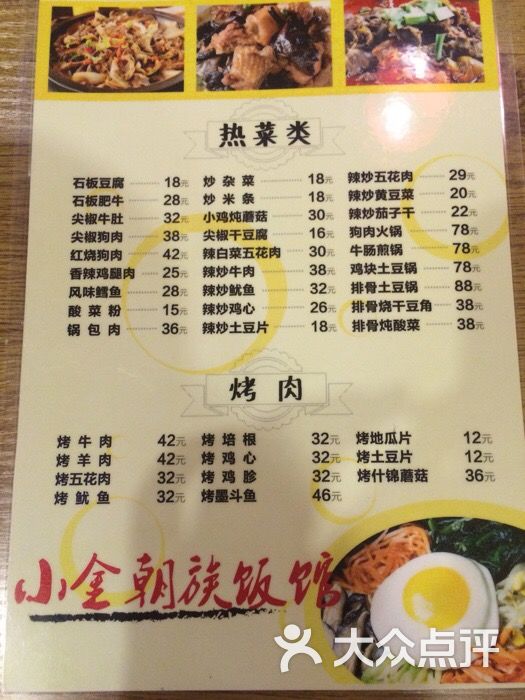 热菜类
石板豆腐 18元
石板肥牛 28元
尖椒牛肚 32元
尖椒狗肉 38元
红烧狗肉 42元
香辣鸡腿肉 25元
风味鳕鱼 28元
酸菜粉 15元
锅包肉 36元
炒杂菜 18元
炒米条 18元
小鸡炖蘑菇 30元
尖椒干豆腐 16元
辣白菜五花肉 30元
辣炒牛肉 38元
辣炒鱿鱼 32元
辣炒鸡心 26元
辣炒土豆片 18元
辣炒五花肉 29元
辣炒黄豆菜 20元
辣炒茄子干 22元
狗肉火锅 78元
牛肠煎锅 78元
鸡块土豆锅 78元
排骨土豆锅 88元
排骨烧干豆角 38元
排骨炖酸菜 38元
烤肉
烤牛肉 42元
烤羊肉 42元
烤五花肉 32元
烤鱿鱼 32元
烤培根 32元
烤鸡心 32元
烤鸡胗 32元
烤墨斗鱼 46元
烤地瓜片 12元
烤土豆片 12元
烤什锦蘑菇 36元
小金朝族饭馆
大众点评